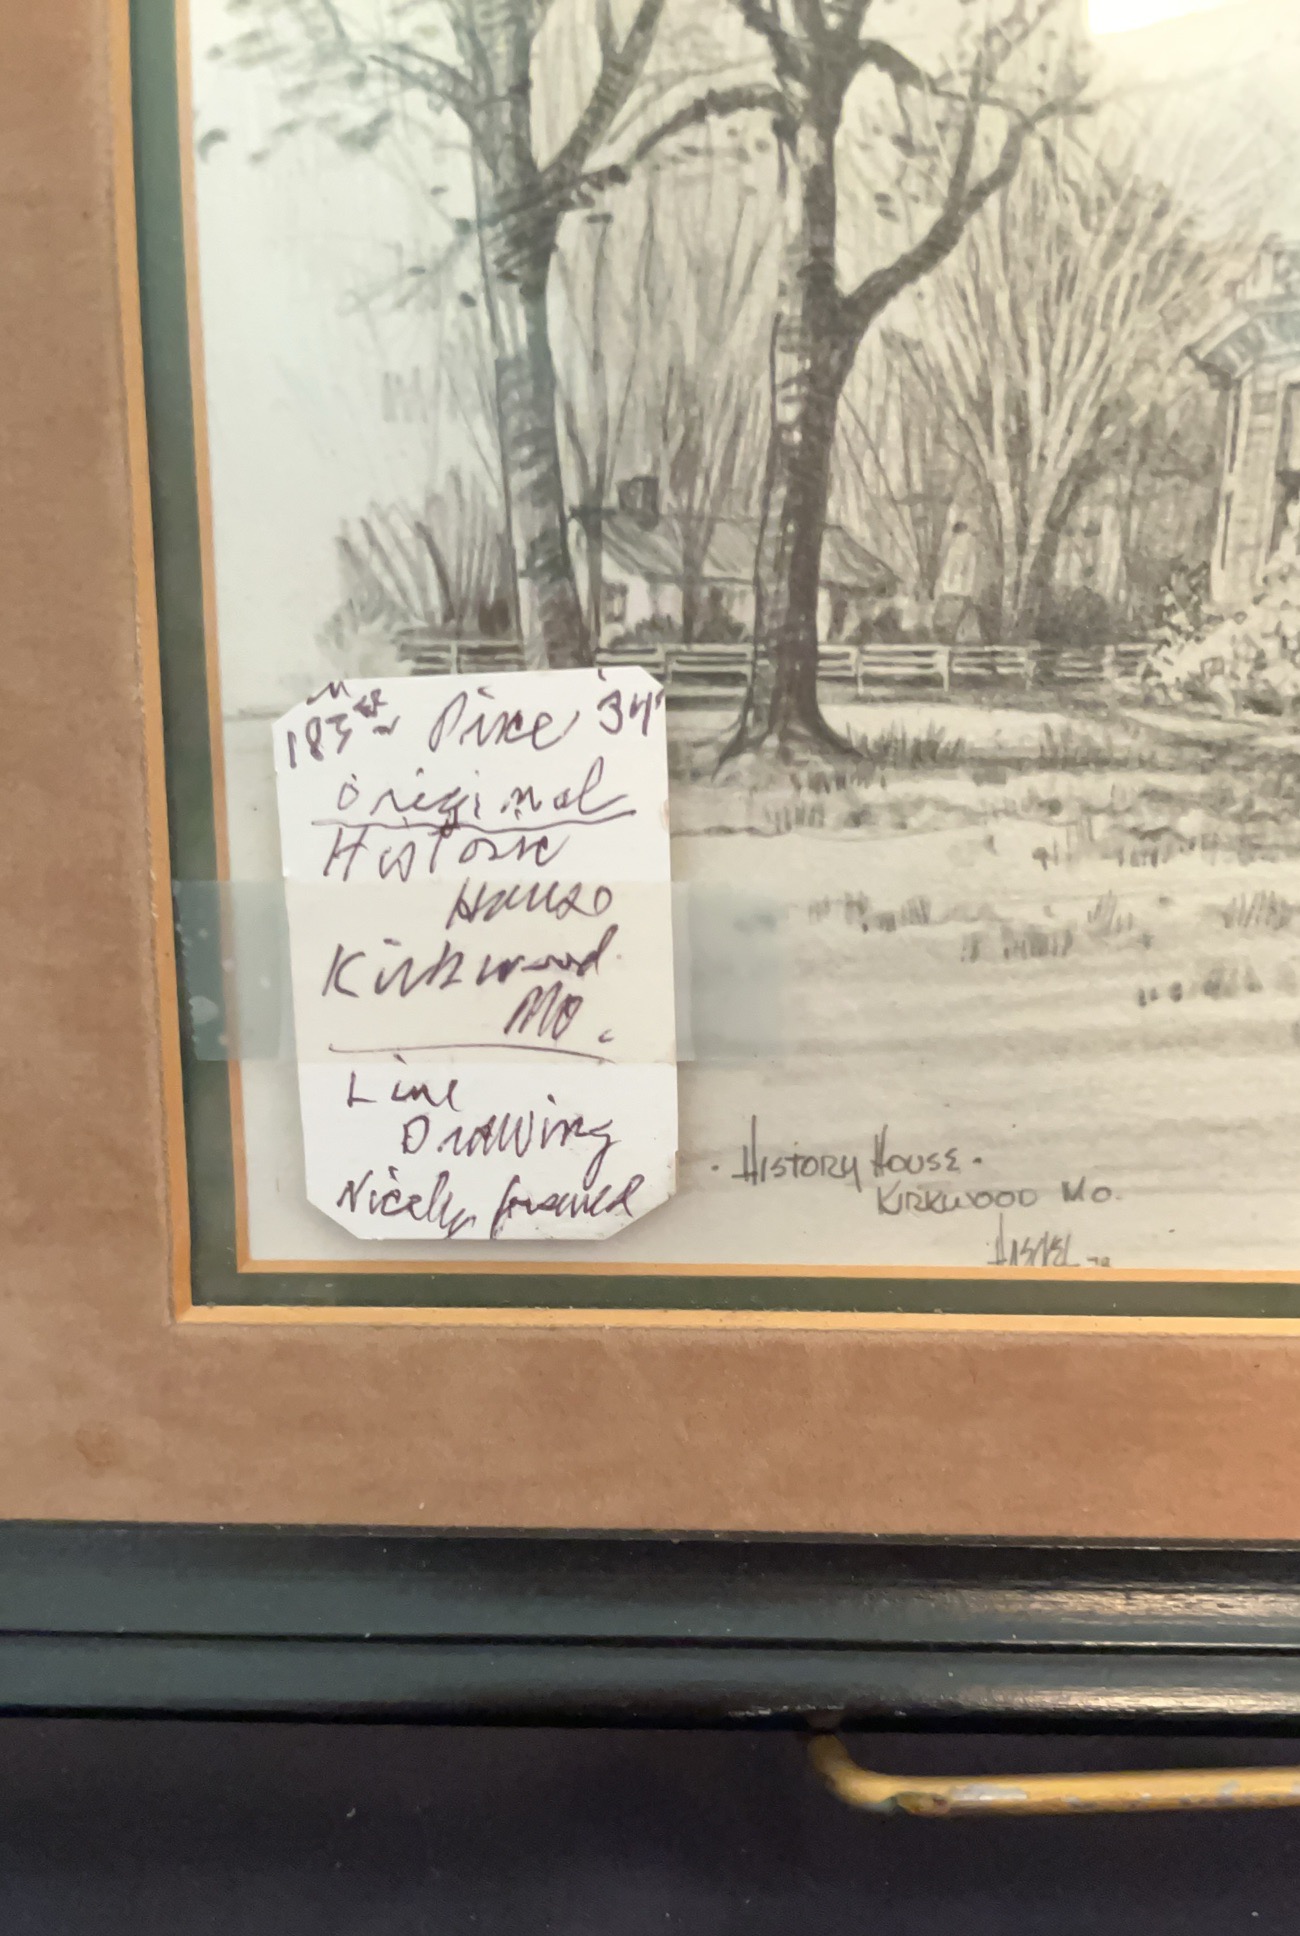 Original
Historic
House
Kirkwood
Mo.
Line
Drawing
Nicely framed
· HISTORY HOUSE ·
KIRKWOOD MO.